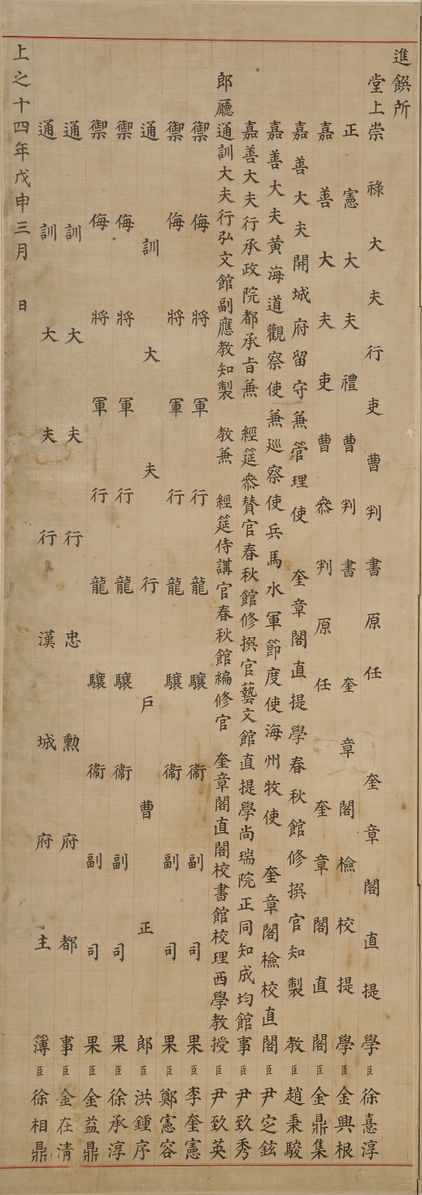 進饌所
堂上崇祿大夫行吏曹判書原任 奎章閣直提學臣徐憙淳
正憲大夫禮曹判書 奎章閣檢校提學臣金興根
嘉善大夫吏曹叅判原任 奎章閣直閣臣金鼎集
嘉善大夫開城府留守兼管理使 奎章閣直提學春秋館修撰官知製教臣趙秉駿
嘉善大夫黃海道觀察使兼巡察使兵馬水軍節度使海州牧使 奎章閣檢校直閣臣尹定鉉
嘉善大夫行承政院都承旨兼 經筵叅贊官春秋館修撰官藝文館直提學尚瑞院正同知成均館事臣尹致秀
郎廳通訓大夫行弘文館副應教知製 教兼 經筵侍講官春秋館編修官 奎章閣直閣校書館校理西學教授臣尹致英
禦侮將軍行龍驤衛副司果臣李奎憲
禦侮將軍行龍驤衛副司果臣鄭憲容
通訓大夫行戶曹正郎臣洪鍾序
禦侮將軍行龍驤衛副司果臣徐承淳
禦侮將軍行龍驤衛副司果臣金益鼎
通訓大夫行忠勳府都事臣金在清
通訓大夫行漢城府主簿臣徐相鼎
上之十四年戊申三月 日